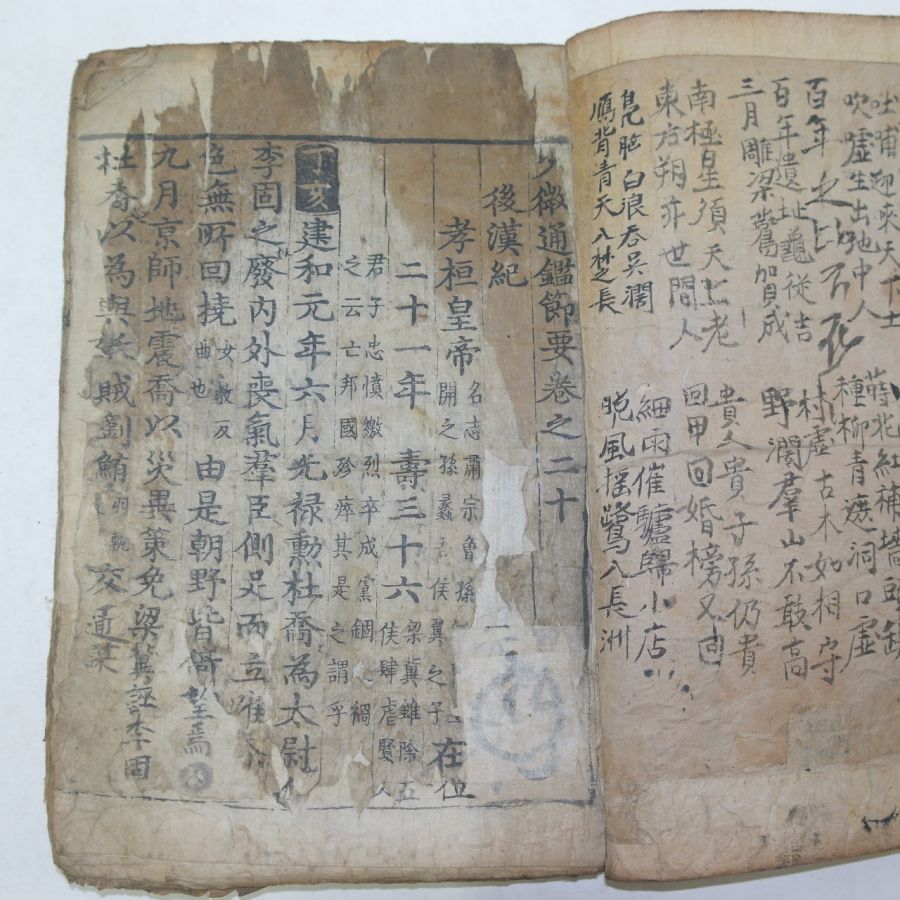 吐哺迎來天下士
蒔花紅補墻頭缺
吹噓生出地中人
種柳青遮洞口虛
百年之
村虛古木如相守
百年遺址龜從吉
野濶羣山不敢高
三月雕梁鷰賀成
南極星須天上老
貴人貴子孫仍貴
東方朔亦世間人
回甲回婚榜又回
白浪呑吳濶
細雨催驢歸小店
鴈背青天入楚長
晩風搖鷺入長洲
少微通鑑節要卷之二十
後漢紀
孝桓皇帝 名志肅宗魯孫
開之孫蠡吾侯翼之子 在位
二十一年 壽三十六 梁冀雖除五
侯肆虐賢人
君子忠憤繳烈卒成黨錮禍
之云亡邦國殄瘁其是之謂乎
丁亥 建和元年六月光禄勲杜喬為太尉
李固之廢內外喪氣羣臣側足而立唯喬
色無所回撓 女敎反
曲也 由是朝野皆
九月京師地震喬以災異策免梁冀誣李固
杜喬以為與賊劉鮪 交通